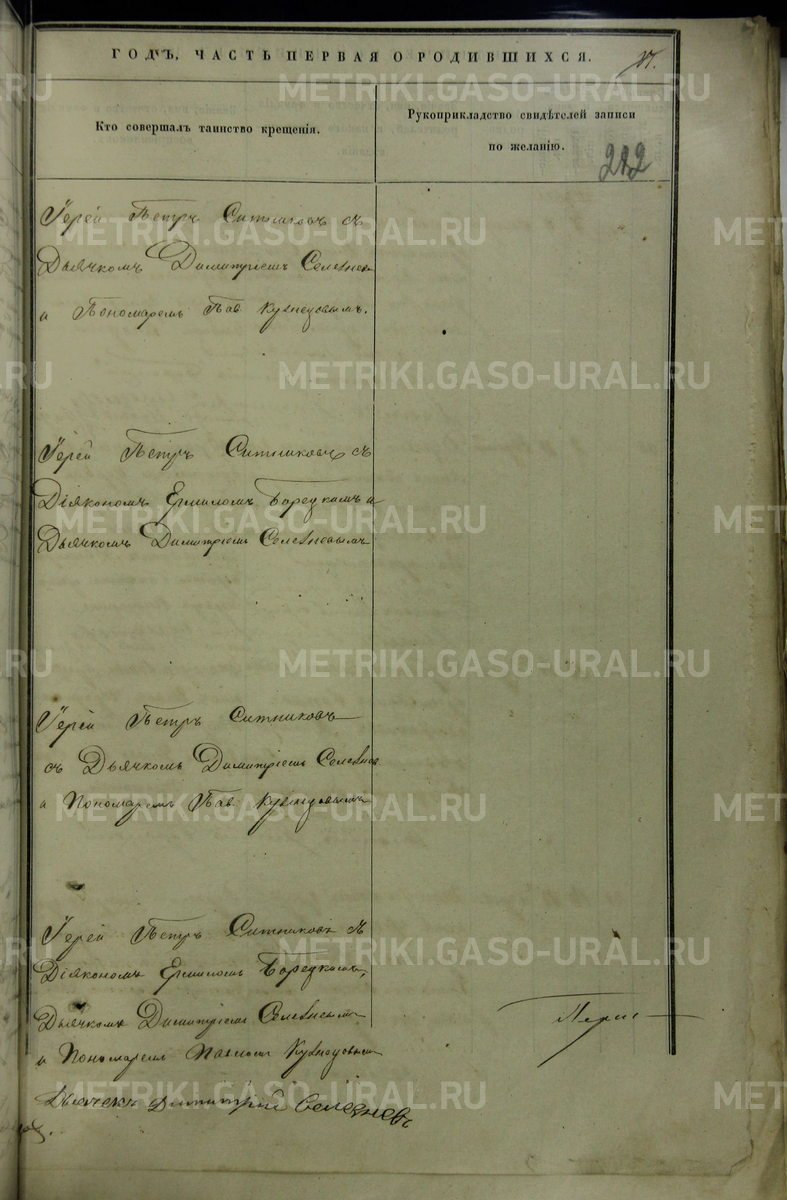 ГОДЪ, ЧАСТЬ ПЕРВАЯ О РОДИВШИХСЯ.
Кто совершалъ таинство крещенія.
Рукоприкладство свидѣтелей записи
по желанію.
282
Іерей Петръ Ситниковъ съ
Дьячкомъ Димитріемъ Селезнев
и Пономаремъ Пав Кузнецовымъ.
Іерей Петръ Ситниковъ съ
Діякономъ Ермиломъ Борецкимъ и
Дьячкомъ Димитріемъ Селезневымъ
Іерей Петръ Ситниковъ
съ Дьячкомъ Димитріемъ Селезнев
и Пономаремъ Пав Кузнецовымъ
Іерей Петръ Ситниковъ съ
Діякономъ Ермиломъ Борецкимъ,
Дьячкомъ Димитріемъ Селезневымъ
и Пономаремъ Павломъ Кузнецовымъ
Дьячекъ Димитрій Селезневъ
METRIKI.GASO-URAL.RU